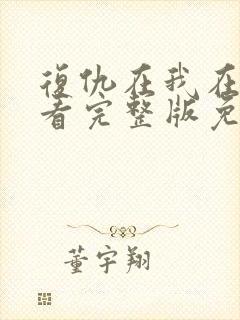 復仇在我在
看完整版免
董宇翔